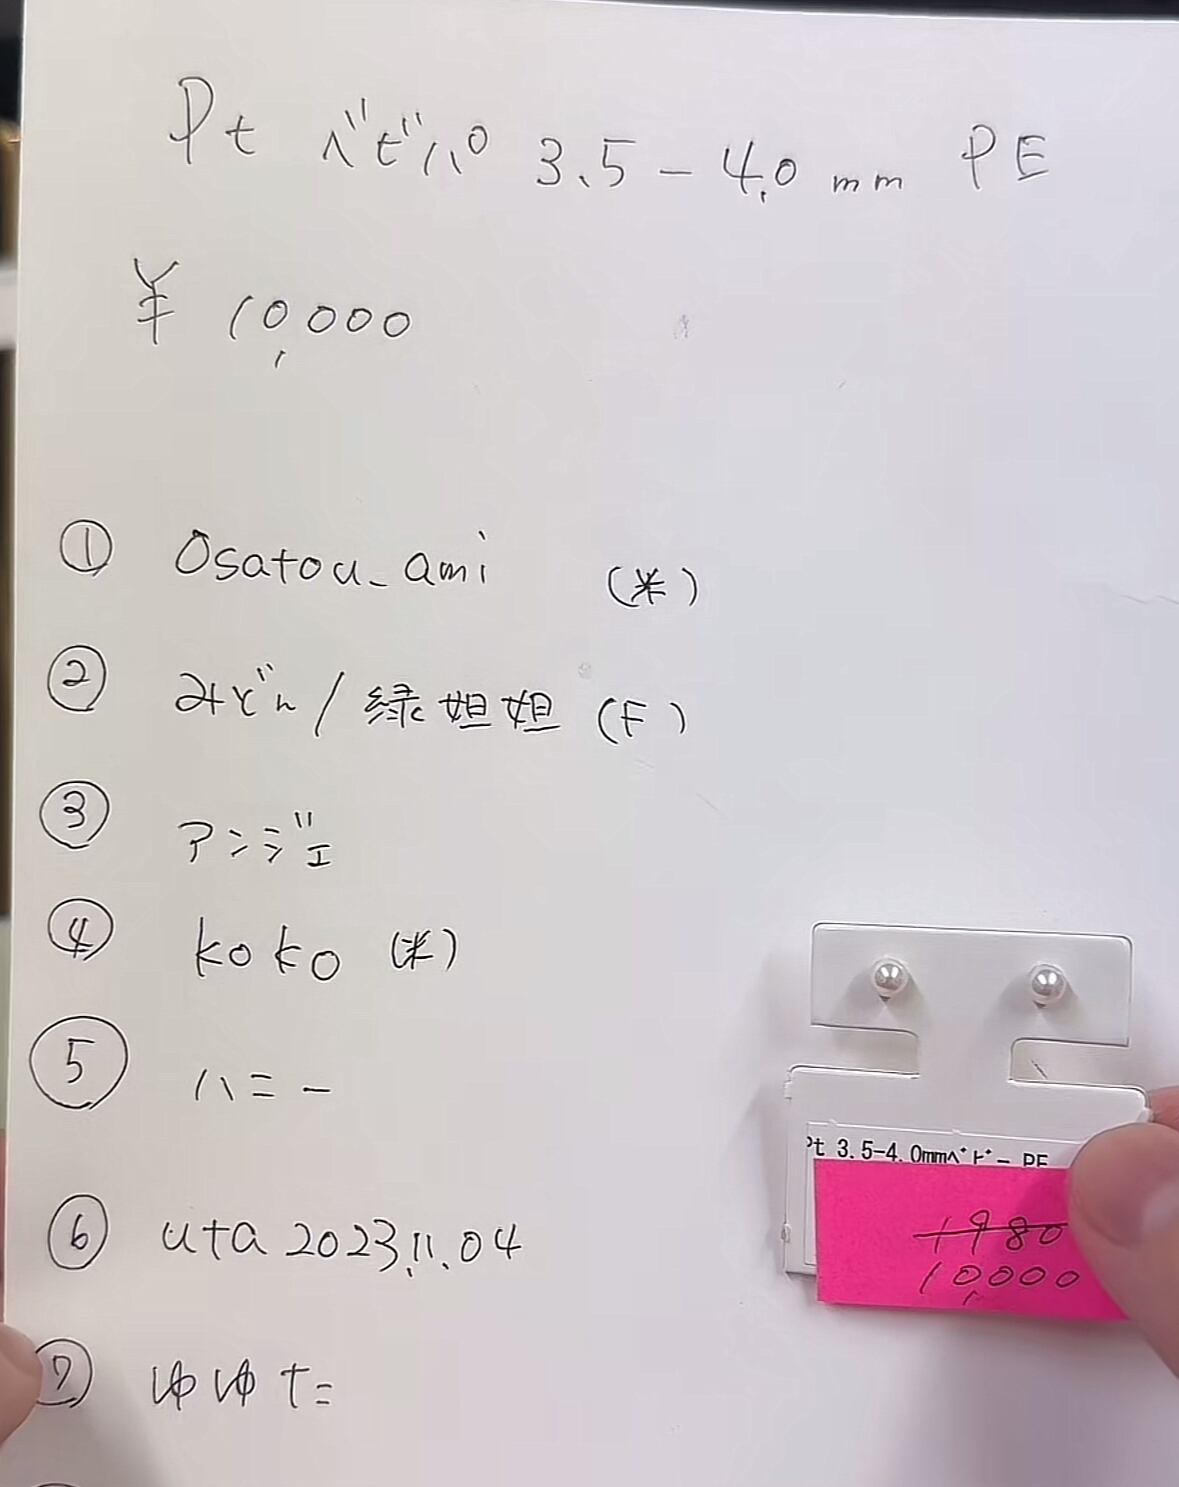 Pt ベビパ 3.5-4.0mm PE
¥10,000
① Osatou_ami (米)
② みどん/緑姐姐 (F)
③ アンジェ
④ koko (米)
⑤ ハニー
⑥ uta 2023.11.04
⑦ ゆゆた
Pt 3.5-4.0mmベビー PE
1980
10,000